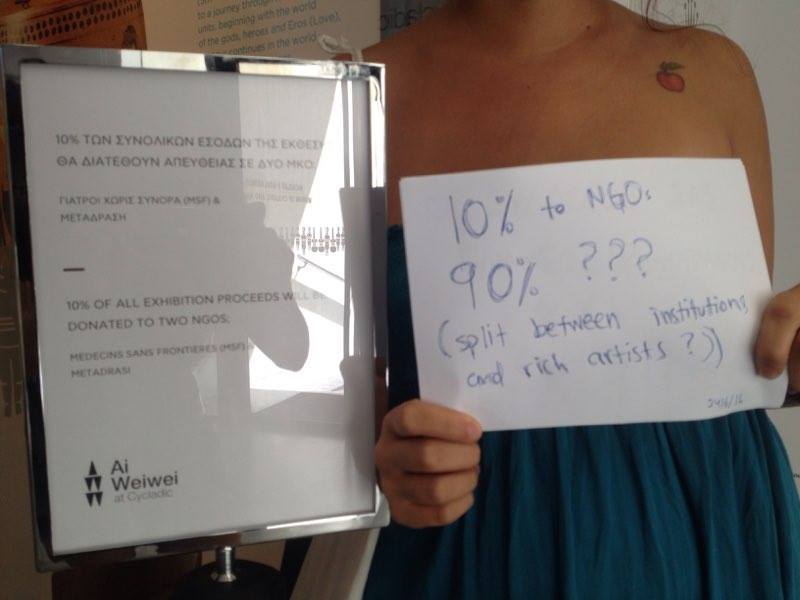 to a journey through
units, beginning with the world
of the gods, heroes and Eros (Love),
continues in the world
10% ΤΩΝ ΣΥΝΟΛΙΚΩΝ ΕΣΟΔΩΝ ΤΗΣ
ΘΑ ΔΙΑΤΕΘΟΥΝ ΑΠΕΥΘΕΙΑΣ ΣΕ ΔΥΟ ΜΚΟ:
ΓΙΑΤΡΟΙ ΧΩΡΙΣ ΣΥΝΟΡΑ (MSF) &
ΜΕΤΑΔΡΑΣΗ
10% OF ALL EXHIBITION PROCEEDS WILL BE
DONATED TO TWO NGOS:
MEDECINS SANS FRONTIERES (MSF)
METADRASI
Ai
Weiwei
at Cycladic
10% to NGOs
90% ???
(split between institutions
and rich artists?)
24/6/16